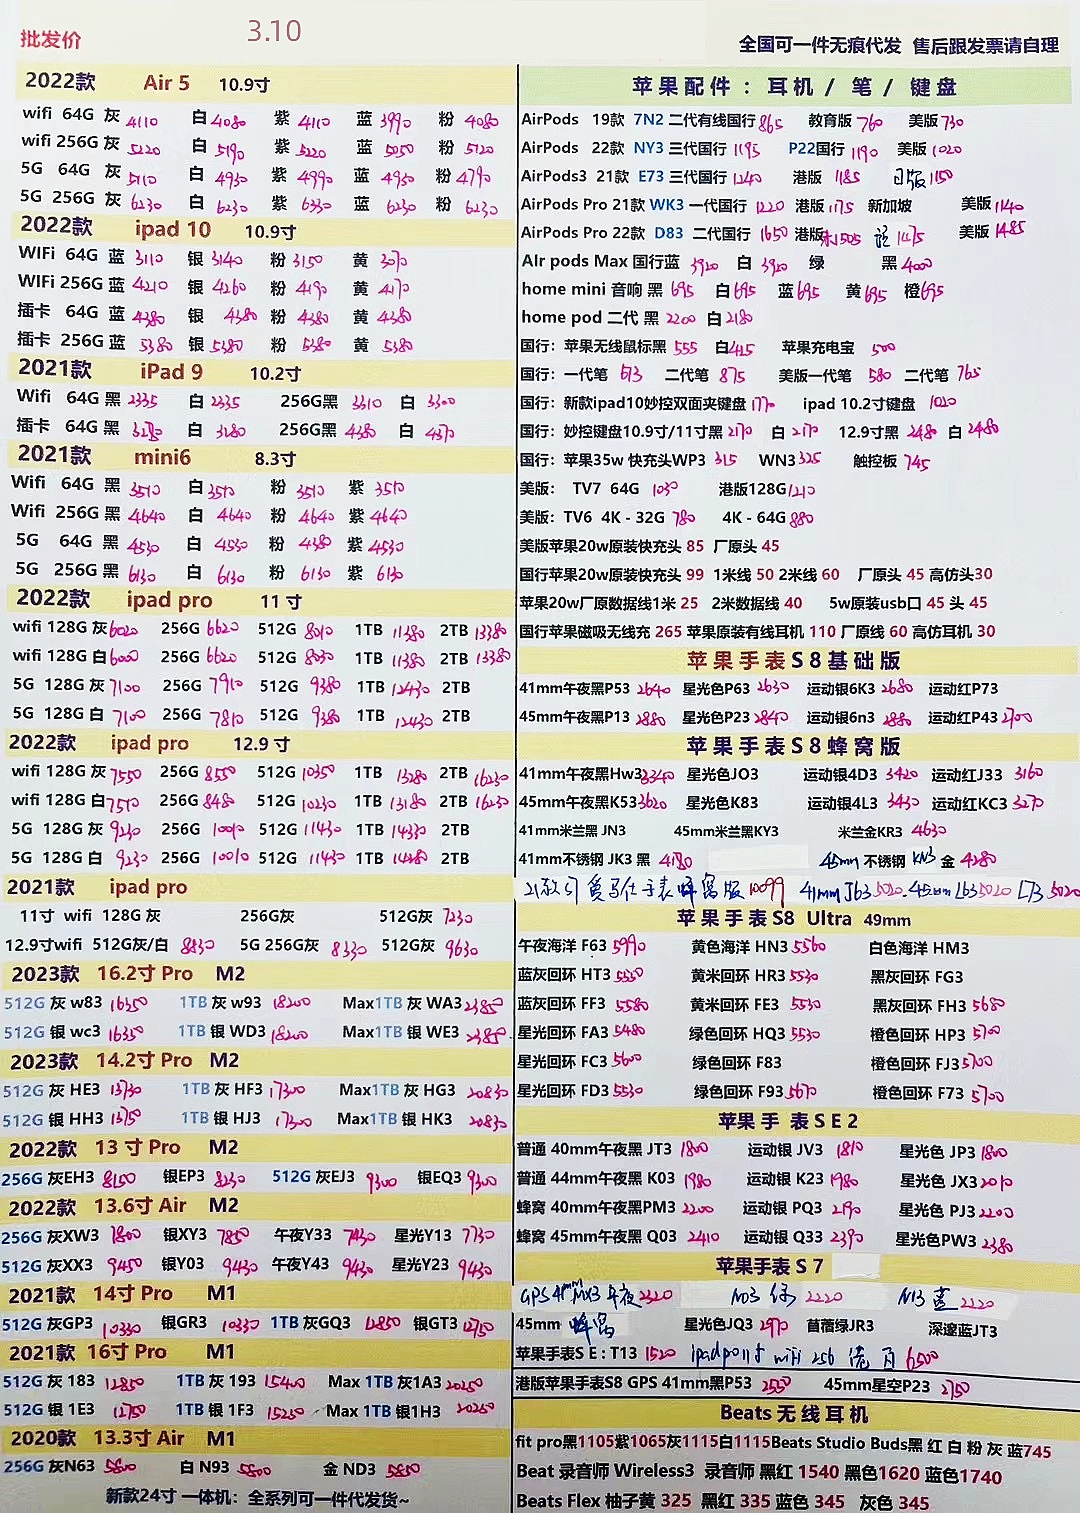 批发价 3.10
全国可一件无痕代发 售后跟发票请自理
2022款 Air 5 10.9寸
wifi 64G 灰 4110 白 4080 紫 4110 蓝 3990 粉 4080
wifi 256G 灰 5220 白 5190 紫 5220 蓝 5050 粉 5120
5G 64G 灰 5110 白 4930 紫 4990 蓝 4950 粉 4790
5G 256G 灰 6230 白 6230 紫 6330 蓝 6230 粉 6230
2022款 ipad 10 10.9寸
WIFi 64G 蓝 3110 银 3140 粉 3150 黄 3070
WIFi 256G 蓝 4210 银 4260 粉 4190 黄 4170
插卡 64G 蓝 4380 银 4380 粉 4380 黄 4380
插卡 256G 蓝 5380 银 5380 粉 5380 黄 5380
2021款 iPad 9 10.2寸
Wifi 64G 黑 2335 白 2335 256G黑 3310 白 3300
插卡 64G 黑 白 3280 256G黑 4380 白 4370
2021款 mini6 8.3寸
Wifi 64G 黑 3510 白 3510 粉 3510 紫 3510
Wifi 256G 黑 4640 白 4640 粉 4640 紫 4640
5G 64G 黑 4530 白 4530 粉 4380 紫 4530
5G 256G 黑 6130 白 6130 粉 6130 紫 6130
2022款 ipad pro 11 寸
wifi 128G 灰 6020 256G 6620 512G 8010 1TB 11380 2TB 13380
wifi 128G 白 6000 256G 6620 512G 8030 1TB 11380 2TB 13380
5G 128G 灰 7100 256G 7910 512G 9380 1TB 12430 2TB
5G 128G 白 7100 256G 7810 512G 9380 1TB 12430 2TB
2022款 ipad pro 12.9 寸
wifi 128G 灰 7550 256G 8550 512G 10350 1TB 13280 2TB 16230
wifi 128G 白 7510 256G 8480 512G 10230 1TB 13180 2TB 16230
5G 128G 灰 9230 256G 10010 512G 11430 1TB 14330 2TB
5G 128G 白 9230 256G 10010 512G 11430 1TB 14280 2TB
2021款 ipad pro
11寸 wifi 128G 灰 256G灰 512G灰 7230
12.9寸wifi 512G灰/白 8830 5G 256G灰 8330 512G灰 9630
2023款 16.2寸 Pro M2
512G 灰 w83 16350 1TB 灰 w93 18200 Max1TB 灰 WA3 23850
512G 银 wc3 16350 1TB 银 WD3 18200 Max1TB 银 WE3 23850
2023款 14.2寸 Pro M2
512G 灰 HE3 13730 1TB 灰 HF3 17300 Max1TB 灰 HG3 20830
512G 银 HH3 13750 1TB 银 HJ3 17300 Max1TB 银 HK3 20830
2022款 13 寸 Pro M2
256G 灰EH3 8100 银EP3 8230 512G 灰EJ3 9300 银EQ3 9300
2022款 13.6寸 Air M2
256G 灰XW3 7800 银XY3 7850 午夜Y33 7430 星光Y13 7730
512G 灰XX3 9450 银Y03 9430 午夜Y43 9430 星光Y23 9430
2021款 14寸 Pro M1
512G 灰GP3 10330 银GR3 10330 1TB 灰GQ3 12850 银GT3 12750
2021款 16寸 Pro M1
512G 灰 183 12850 1TB 灰 193 15400 Max 1TB 灰1A3 20250
512G 银 1E3 12750 1TB 银 1F3 15250 Max 1TB 银1H3 20250
2020款 13.3寸 Air M1
256G 灰N63 5800 白 N93 5800 金 ND3 5850
新款24寸 一体机：全系列可一件代发货~
苹果配件：耳机 / 笔 / 键盘
AirPods 19款 7N2 二代有线国行 865 教育版 760 美版 730
AirPods 22款 NY3 三代国行 1195 P22国行 1190 美版 1020
AirPods3 21款 E73 三代国行 1240 港版 1185 日版 1150
AirPods Pro 21款 WK3 一代国行 1220 港版 1175 新加坡 美版 1140
AirPods Pro 22款 D83 二代国行 1650 港版 1505 1475 美版 1485
AIr pods Max 国行蓝 3920 白 3920 绿 黑 4000
home mini 音响 黑 695 白 695 蓝 695 黄 695 橙 695
home pod 二代 黑 2200 白 2180
国行：苹果无线鼠标黑 555 白 415 苹果充电宝 500
国行：一代笔 613 二代笔 875 美版一代笔 580 二代笔 765
国行：新款ipad10妙控双面夹键盘 1770 ipad 10.2寸键盘 1020
国行：妙控键盘10.9寸/11寸黑 2170 白 2170 12.9寸黑 2480 白 2480
国行：苹果35w 快充头WP3 315 WN3 325 触控板 745
美版： TV7 64G 1030 港版128G 1210
美版：TV6 4K - 32G 780 4K - 64G 880
美版苹果20w原装快充头 85 厂原头 45
国行苹果20w原装快充头 99 1米线 50 2米线 60 厂原头 45 高仿头30
苹果20w厂原数据线1米 25 2米数据线 40 5w原装usb口 45 头 45
国行苹果磁吸无线充 265 苹果原装有线耳机 110 厂原线 60 高仿耳机 30
苹果手表S8基础版
41mm午夜黑P53 2640 星光色P63 2630 运动银6K3 2680 运动红P73
45mm午夜黑P13 2880 星光色P23 2840 运动银6n3 2880 运动红P43 2700
苹果手表S8蜂窝版
41mm午夜黑Hw3 3340 星光色JO3 运动银4D3 3420 运动红J33 3160
45mm午夜黑K53 3620 星光色K83 运动银4L3 3430 运动红KC3 3270
41mm米兰黑 JN3 45mm米兰黑KY3 米兰金KR3 4630
41mm不锈钢 JK3 黑 4180 45mm 不锈钢 KN3 金 4280
21款 爱马仕手表蜂窝版 10099 41mm J63 5020 45mm L63 5020 LJ3 5020
苹果手表S8 Ultra 49mm
午夜海洋 F63 5990 黄色海洋 HN3 5560 白色海洋 HM3
蓝灰回环 HT3 5550 黄米回环 HR3 5530 黑灰回环 FG3
蓝灰回环 FF3 5580 黄米回环 FE3 5530 黑灰回环 FH3 5680
星光回环 FA3 5480 绿色回环 HQ3 5530 橙色回环 HP3 5700
星光回环 FC3 5600 绿色回环 F83 橙色回环 FJ3 5700
星光回环 FD3 5530 绿色回环 F93 5670 橙色回环 F73 5700
苹果手 表SE2
普通 40mm午夜黑 JT3 1800 运动银 JV3 1810 星光色 JP3 1800
普通 44mm午夜黑 K03 1980 运动银 K23 1980 星光色 JX3 2010
蜂窝 40mm午夜黑PM3 2200 运动银 PQ3 2190 星光色 PJ3 2200
蜂窝 45mm午夜黑 Q03 2410 运动银 Q33 2390 星光色PW3 2380
苹果手表S7
GPS 41mm MX3 午夜 2320 ND3 绿 2220 N13 蓝 2120
45mm 蜂窝 星光色JQ3 2970 苜蓿绿JR3 深邃蓝JT3
苹果手表SE：T13 1520 ipad pro 11寸 wifi 256 6500
港版苹果手表S8 GPS 41mm黑P53 2550 45mm星空P23 2750
Beats无线耳机
fit pro黑1105紫1065灰1115白1115Beats Studio Buds黑 红 白 粉 灰 蓝745
Beat 录音师 Wireless3 录音师 黑红 1540 黑色1620 蓝色1740
Beats Flex 柚子黄 325 黑红 335 蓝色 345 灰色 345